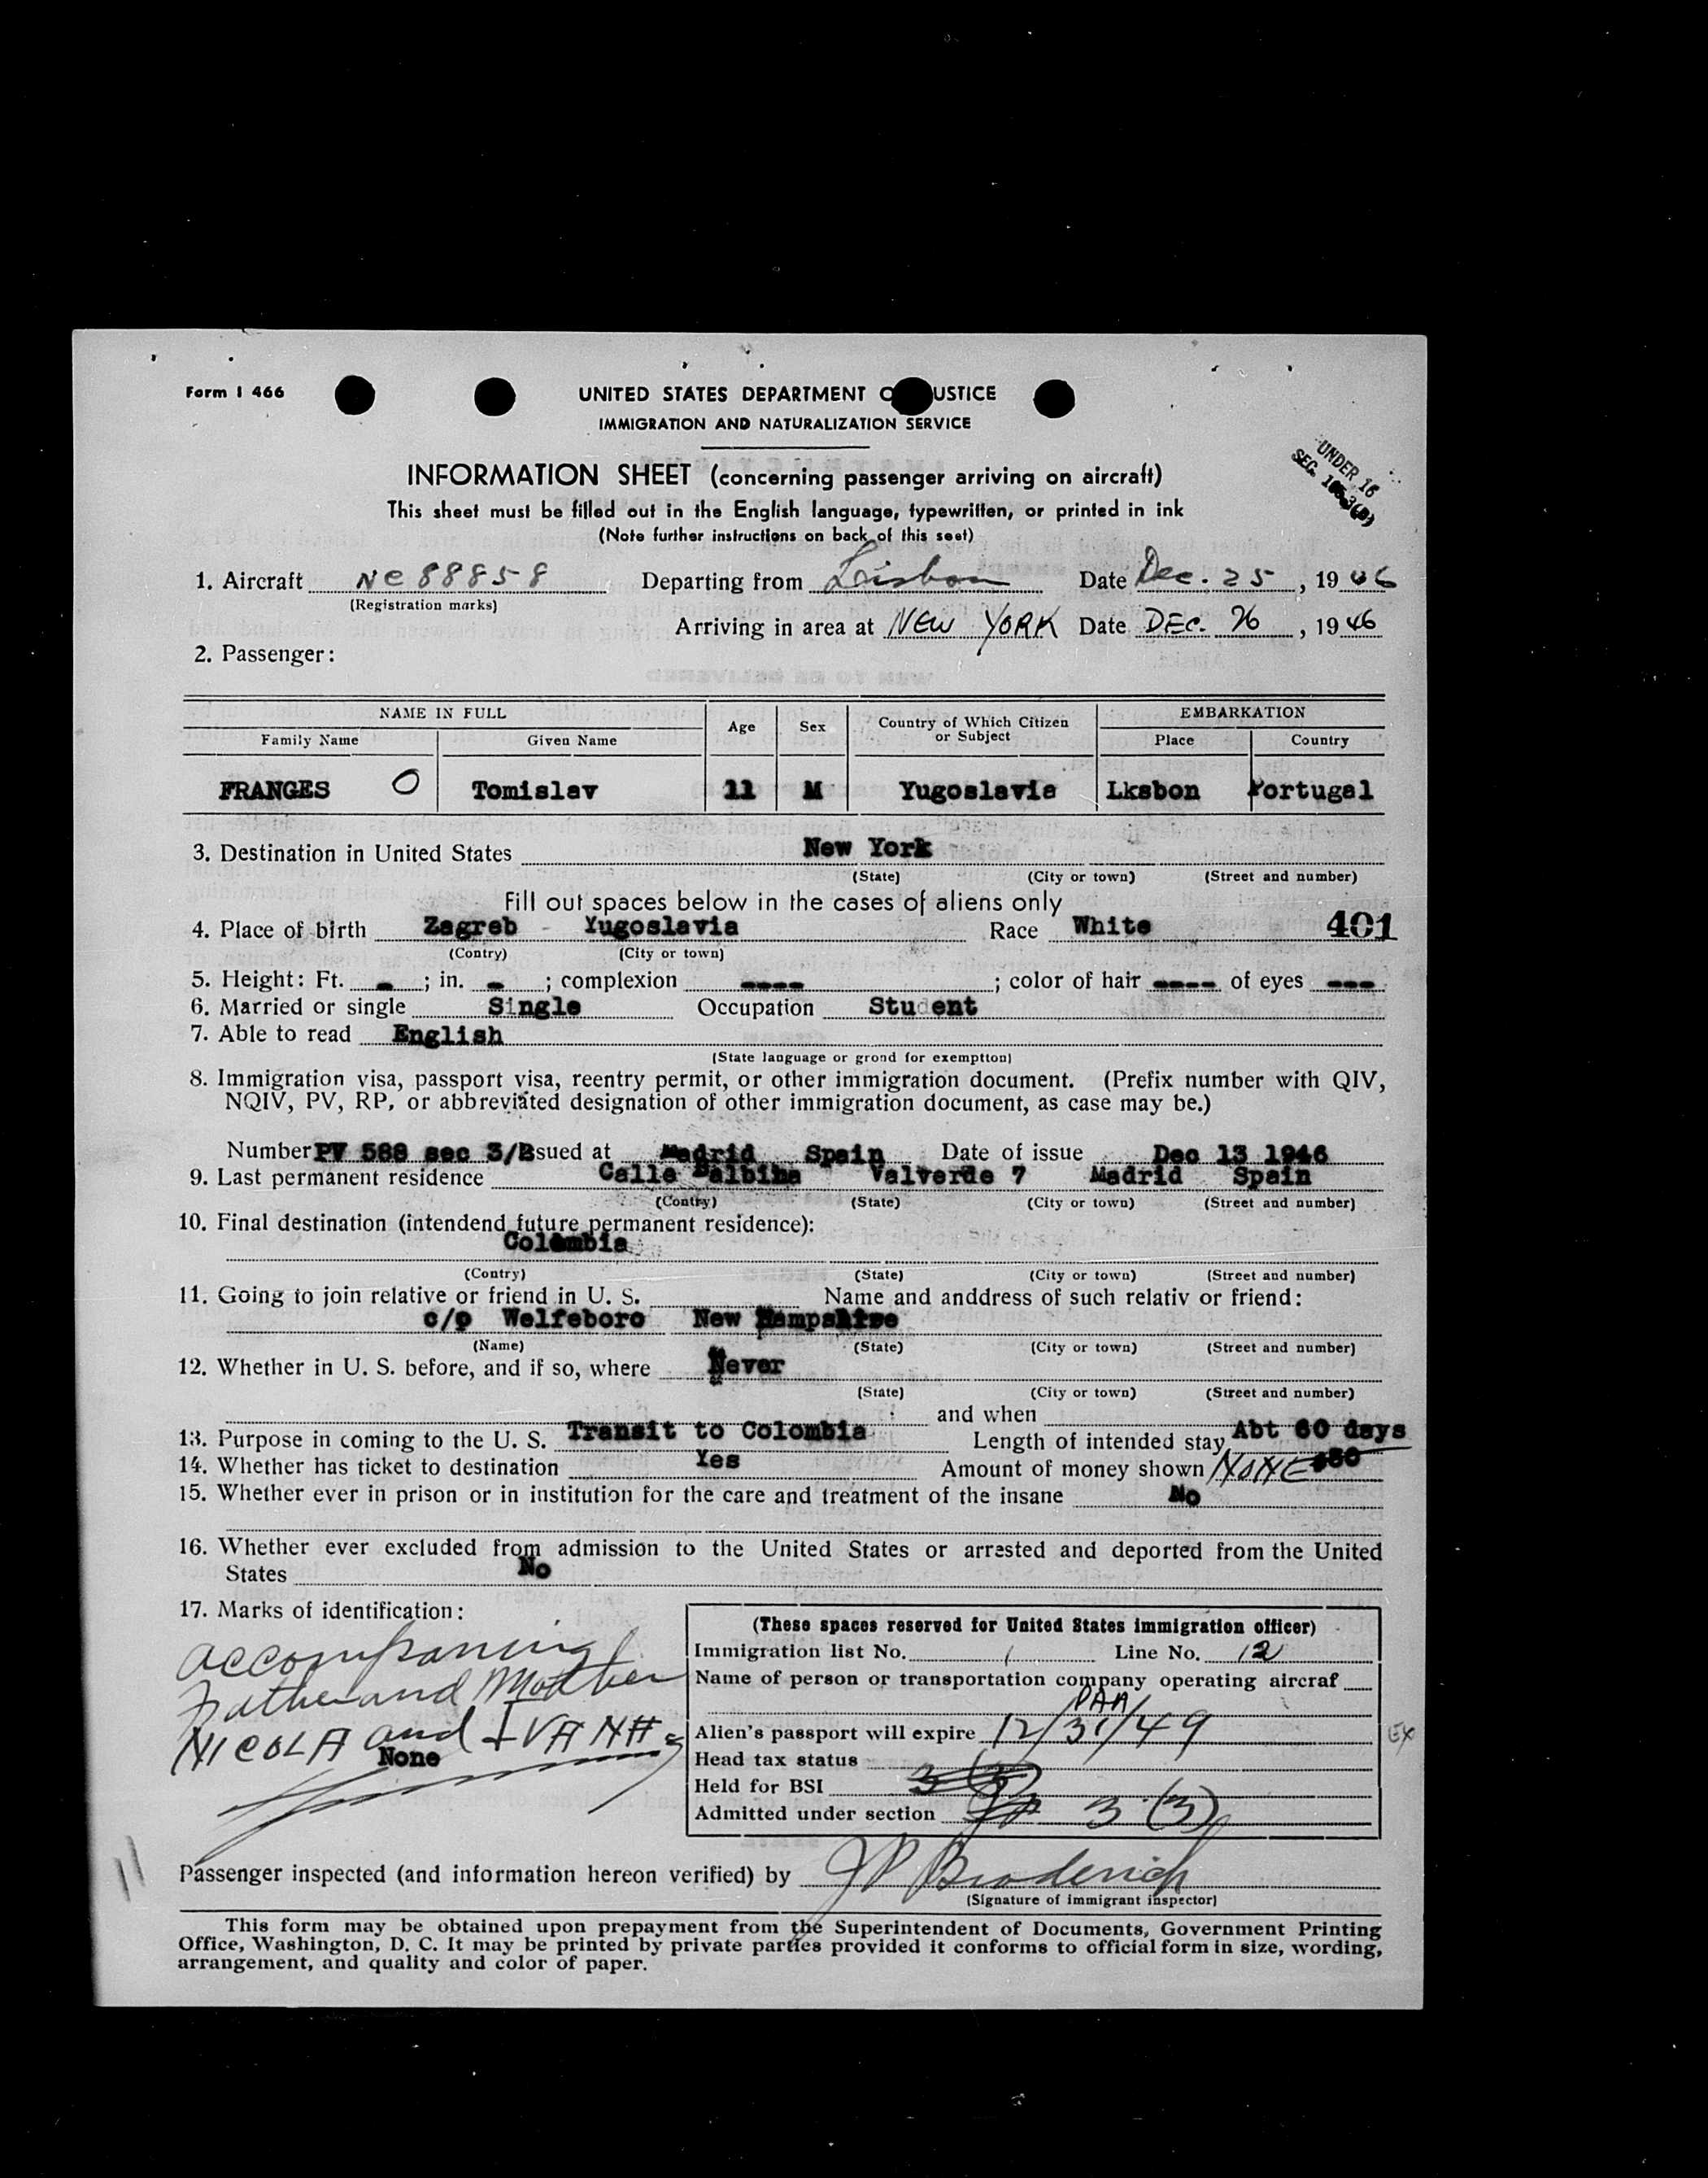 Form I 466
UNITED STATES DEPARTMENT O USTICE
IMMIGRATION AND NATURALIZATION SERVICE
UNDER 16
SEC.
INFORMATION SHEET (concerning passenger arriving on aircraft)
This sheet must be filled out in the English language, typewritten, or printed in ink
(Note further instructions on back of this seet)
1. Aircraft NC 88858 Departing from Lisbon Date Dec. 25, 1946
(Registration marks)
Arriving in area at NEW YORK Date DEC. 26, 1946
2. Passenger:
NAME IN FULL Age Sex Country of Which Citizen or Subject EMBARKATION
Family Name Given Name Place Country
FRANGES O Tomislav 11 M Yugoslavia Lksbon Portugal
3. Destination in United States New York
(State) (City or town) (Street and number)
Fill out spaces below in the cases of aliens only
4. Place of birth Zagreb - Yugoslavia Race White 401
(Contry) (City or town)
5. Height: Ft. - ; in. - ; complexion ---- ; color of hair ---- of eyes ---
6. Married or single Single Occupation Student
7. Able to read English
(State language or grond for exemptton)
8. Immigration visa, passport visa, reentry permit, or other immigration document. (Prefix number with QIV,
NQIV, PV, RP, or abbreviated designation of other immigration document, as case may be.)
Number PV 588 sec 3/ssued at Madrid Spain Date of issue Dec 13 1946
9. Last permanent residence Calle Balbina Valverde 7 Madrid Spain
(Contry) (State) (City or town) (Street and number)
10. Final destination (intendend future permanent residence):
Colombia
(Contry) (State) (City or town) (Street and number)
11. Going to join relative or friend in U. S. Name and anddress of such relativ or friend:
c/o Welfeboro New Hampshire
(Name) (State) (City or town) (Street and number)
12. Whether in U. S. before, and if so, where Never
(State) (City or town) (Street and number)
and when
13. Purpose in coming to the U. S. Transit to Colombia Length of intended stay Abt 60 days
14. Whether has ticket to destination Yes Amount of money shown NONE $50
15. Whether ever in prison or in institution for the care and treatment of the insane No
16. Whether ever excluded from admission to the United States or arrested and deported from the United
States No
17. Marks of identification:
accompaning
Father and Mother
NICOLA and IVANA
None
(These spaces reserved for United States immigration officer)
Immigration list No. 1 Line No. 12
Name of person or transportation company operating aircraf
PAA
Alien's passport will expire 12/31/49 EX
Head tax status
Held for BSI
Admitted under section 3 (3)
11
Passenger inspected (and information hereon verified) by JP Broderick
(Signature of immigrant inspector)
This form may be obtained upon prepayment from the Superintendent of Documents, Government Printing
Office, Washington, D. C. It may be printed by private parties provided it conforms to official form in size, wording,
arrangement, and quality and color of paper.